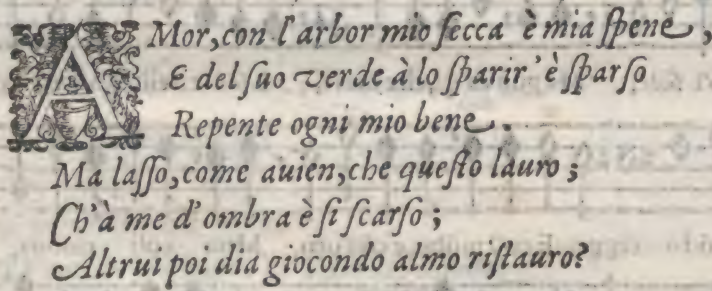 AMor, con l'arbor mio ſecca è mia ſpene,
E del ſuo verde à lo ſparir' è ſparſo
Repente ogni mio bene.
Ma laſſo, come auien, che queſto lauro;
Ch'à me d'ombra è ſi ſcarſo;
Altrui poi dia giocondo almo riſtauro?